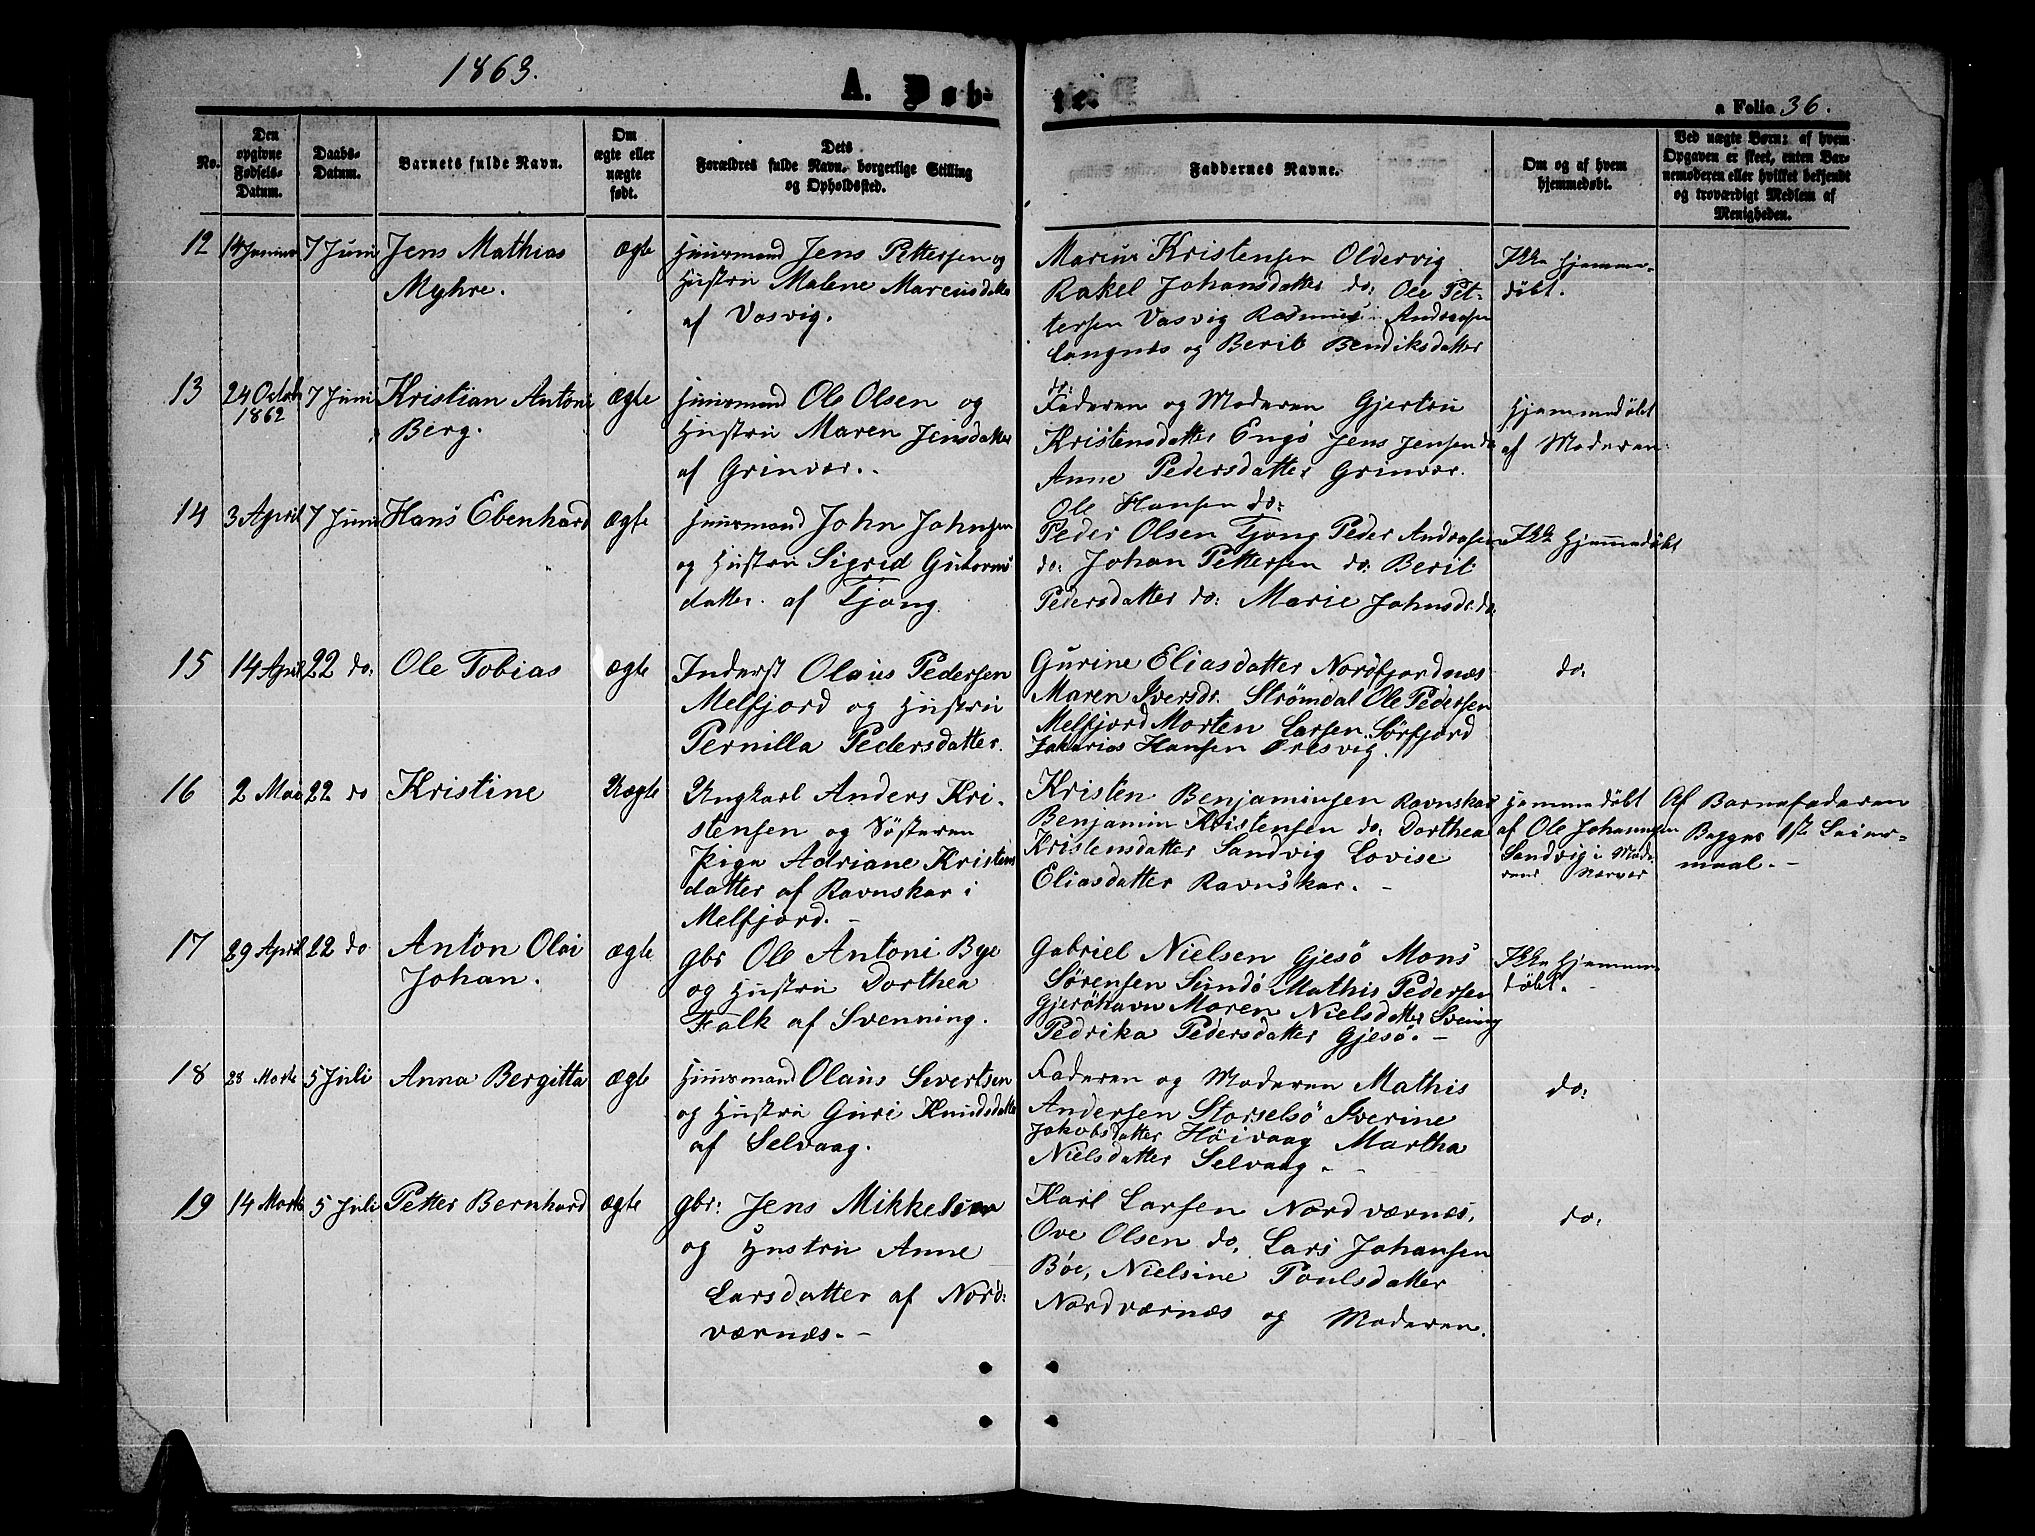 1863.
A. Døb-
te.
a Folio 36.
No.
Den opgivne Fødsels-Datum.
Daabs-Datum.
Barnets fulde Navn.
Om ægte eller uægte født.
Dets Forældres fulde Navn, borgerlige Stilling og Opholdssted.
Faddernes Navne.
Om og af hvem hjemmedøbt.
Ved uægte Børn: af hvem Opgaven er skeet, enten Barnemoderen eller hvilket bekjendt og troværdigt Medlem af Menigheden.
12 14 Januar 7 Juni Jens Mathias ægte Huusmand Jens Pettersen og
Myhre. Hustru Malene Marcusdatter
af Vasvig.
Marius Kristensen Oldervig
Rakel Johansdatter do: Ole Pet-
tersen Vasvig Rasmus Andreasen
Langnes og Berit Bendiksdatter
do:
Ikke hjemme-
døbt.
13 24 Octob 7 Juni Kristian Antoni ægte Huusmand Ole Olsen og
1862 Berg. Hustru Maren Jensdatter
af Grinvær.
Faderen og Moderen Gjertru
Kristensdatter Engø Jens Jensen do
Anne Pedersdatter Grinvær.
Ole Hansen do:
Hjemmedøbt
af Moderen
14 3 April 7 Juni Hans Ebenhard ægte Huusmand John Johnsen
og Hustru Sigrid Guttorms
datter af Tjong
Peder Olsen Tjong Peder Andreasen
do: Johan Pettersen do: Berit
Pedersdatter do: Marie Johnsdr. do:
Ikke Hjemmedøbt
15 14 April 22 do: Ole Tobias ægte Inderst Olaus Pedersen
Melfjord og Hustru
Pernilla Pedersdatter.
Gurine Eliasdatter Nordfjordnæs
Maren Iversdr. Strømdal Ole Pedersen
Melfjord Morten Larsen Sørfjord
Zakarias Hansen Øresvig.
do:
16 2 Mai 22 do Kristine Uægte Ungkarl Anders Kri-
stensen og Søsteren
Pige Adriane Kristens
datter af Ravnskar i
Melfjord.
Kristen Benjaminsen Ravnskar
Benjamin Kristensen do: Dorthea
Kristensdatter Sandvig Lovise
Eliasdatter Ravnskar.
Hjemmedøbt
af Ole Johannesen
Sandvig i Mode-
rens Nærvær
Af Barnefaderen
Begges 1ste Leier-
maal.
17 29 April 22 do Anton Olai ægte gbr Ole Antoni Bye
Johan. og Hustru Dorthea
Falk af Svenning.
Gabriel Nielsen Gjesø Mons
Sørensen Sundø Mathis Pedersen
Gjerøhavn Maren Nielsdatter Svening
Pedrika Pedersdatter Gjesø.
Ikke Hjemme-
døbt.
18 28 Marts 5 Juli Anna Bergitta ægte Huusmand Olaus Sivertsen
og Hustru Guri Knudsdatter
af Selvaag.
Faderen og Moderen Mathis
Andersen Storselsø Iverine
Jakobsdatter Høivaag Martha
Nielsdatter Selvaag.
do:
19 14 Marts 5 Juli Petter Bernhard ægte gbr: Jens Mikkelsen
og Hustru Anne
Larsdatter af Nord-
værnæs.
Karl Larsen Nordværnæs,
Ove Olsen do, Lars Johansen
Bøe, Nielsine Poulsdatter
Nordværnæs og Moderen.
do: